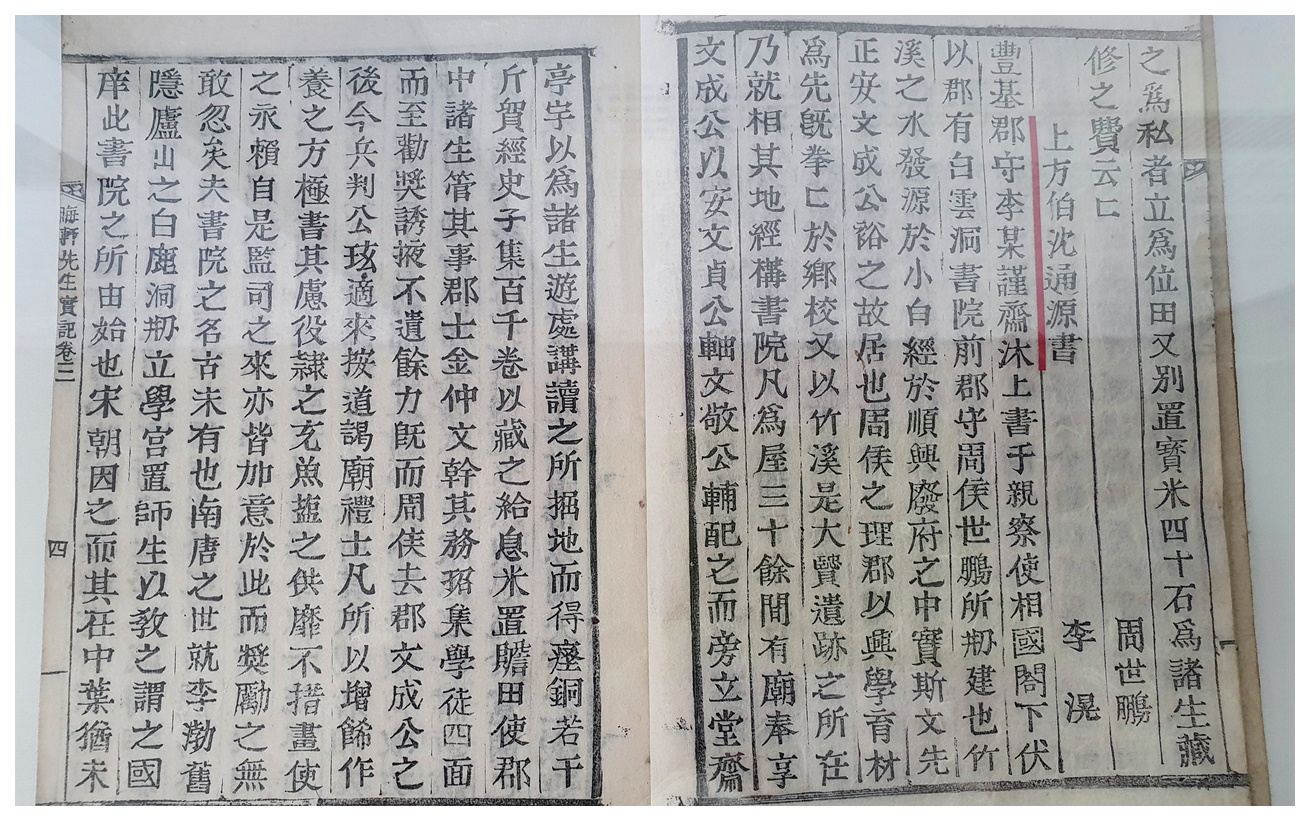 之爲私者立爲位田又別置寶米四十石爲諸生藏
修之費云〻 周世鵬
上方伯沈通源書 李滉
豐基郡守李某謹齋沐上書于親察使相國閤下伏
以郡有白雲洞書院前郡守周侯世鵬所刱建也竹
溪之水發源於小白經於順興廢府之中實斯文先
正安文成公裕之故居也周侯之理郡以興學育材
爲先旣拳〻於鄕校又以竹溪是大賢遺跡之所在
乃就相其地經構書院凡爲屋三十餘間有廟奉享
文成公以安文貞公軸文敬公輔配之而旁立堂齋
亭宇以爲諸生遊處講讀之所掘地而得瘞銅若干
斤貿經史子集百千卷以藏之給息米置贍田使郡
中諸生管其事郡士金仲文幹其務招集學徒四面
而至勸奬誘掖不遺餘力旣而周侯去郡文成公之
後今兵判公玹適來按道謁廟禮士凡所以增餙作
養之方極書其慮役隷之充魚鹽之供靡不措畫使
之永賴自是監司之來亦皆加意於此而奬勵之無
敢忽矣夫書院之名古未有也南唐之世就李渤舊
隱廬山之白鹿洞刱立學宮置師生以敎之謂之國
庠此書院之所由始也宋朝因之而其在中葉猶未
晦軒先生實記卷二 四